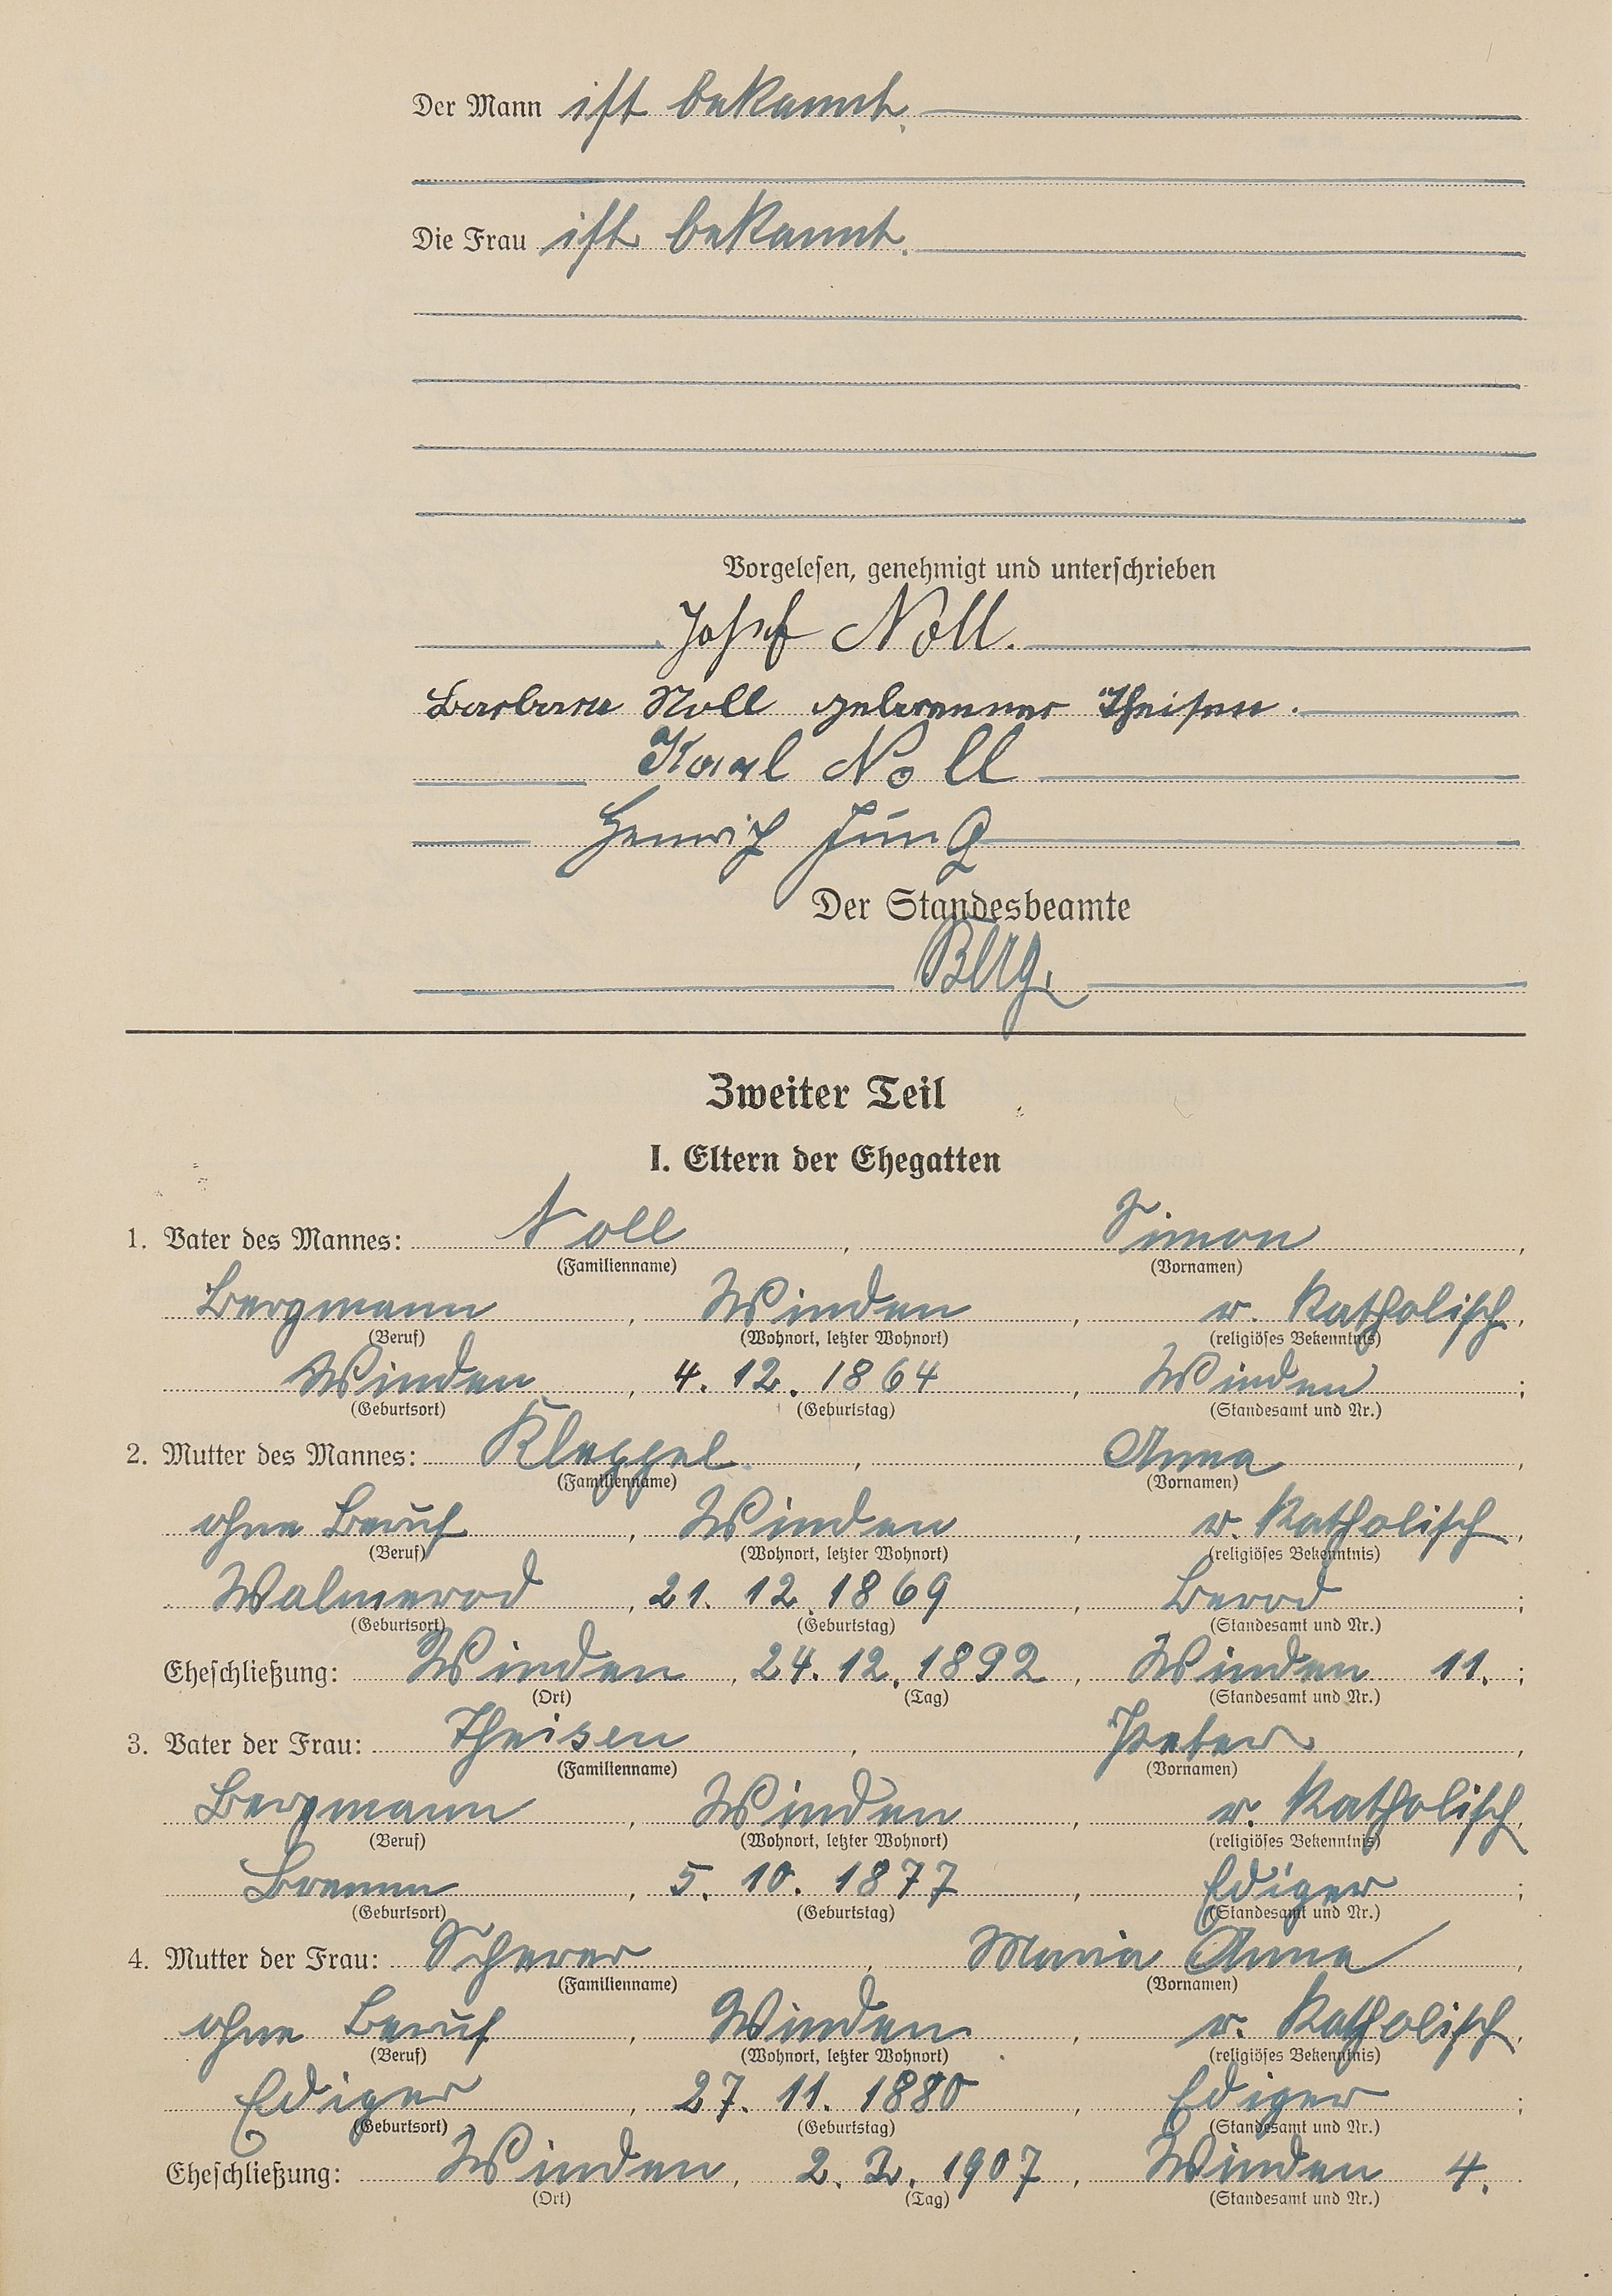 Der Mann ist bekannt.
Die Frau ist bekannt.
Vorgelesen, genehmigt und unterschrieben
Josef Noll.
Barbara Noll geborenner Theisen.
Karl Noll
Heinrich Jung
Der Standesbeamte
Zweiter Teil
I. Eltern der Ehegatten
1. Vater des Mannes: Noll, Simon,
(Familienname) (Vornamen)
Bergmann, Winden, r. Katholisch,
(Beruf) (Wohnort, letzter Wohnort) (religiöses Bekenntnis)
Winden, 4. 12. 1864, Winden;
(Geburtsort) (Geburtstag) (Standesamt und Nr.)
2. Mutter des Mannes: Kleppel, Anna,
(Familienname) (Vornamen)
ohne Beruf, Winden, r. Katholisch,
(Beruf) (Wohnort, letzter Wohnort) (religiöses Bekenntnis)
Walmerod, 21. 12. 1869, Berod;
(Geburtsort) (Geburtstag) (Standesamt und Nr.)
Eheschließung: Winden, 24. 12. 1892, Winden 11.;
(Ort) (Tag) (Standesamt und Nr.)
3. Vater der Frau: Theisen, Peter,
(Familienname) (Vornamen)
Bergmann, Winden, r. Katholisch,
(Beruf) (Wohnort, letzter Wohnort) (religiöses Bekenntnis)
Bremm, 5. 10. 1877, Ediger;
(Geburtsort) (Geburtstag) (Standesamt und Nr.)
4. Mutter der Frau: Scherer, Maria Anna,
(Familienname) (Vornamen)
ohne Beruf, Winden, r. Katholisch,
(Beruf) (Wohnort, letzter Wohnort) (religiöses Bekenntnis)
Ediger, 27. 11. 1880, Ediger;
(Geburtsort) (Geburtstag) (Standesamt und Nr.)
Eheschließung: Winden, 2. 2. 1907, Winden 4.
(Ort) (Tag) (Standesamt und Nr.)